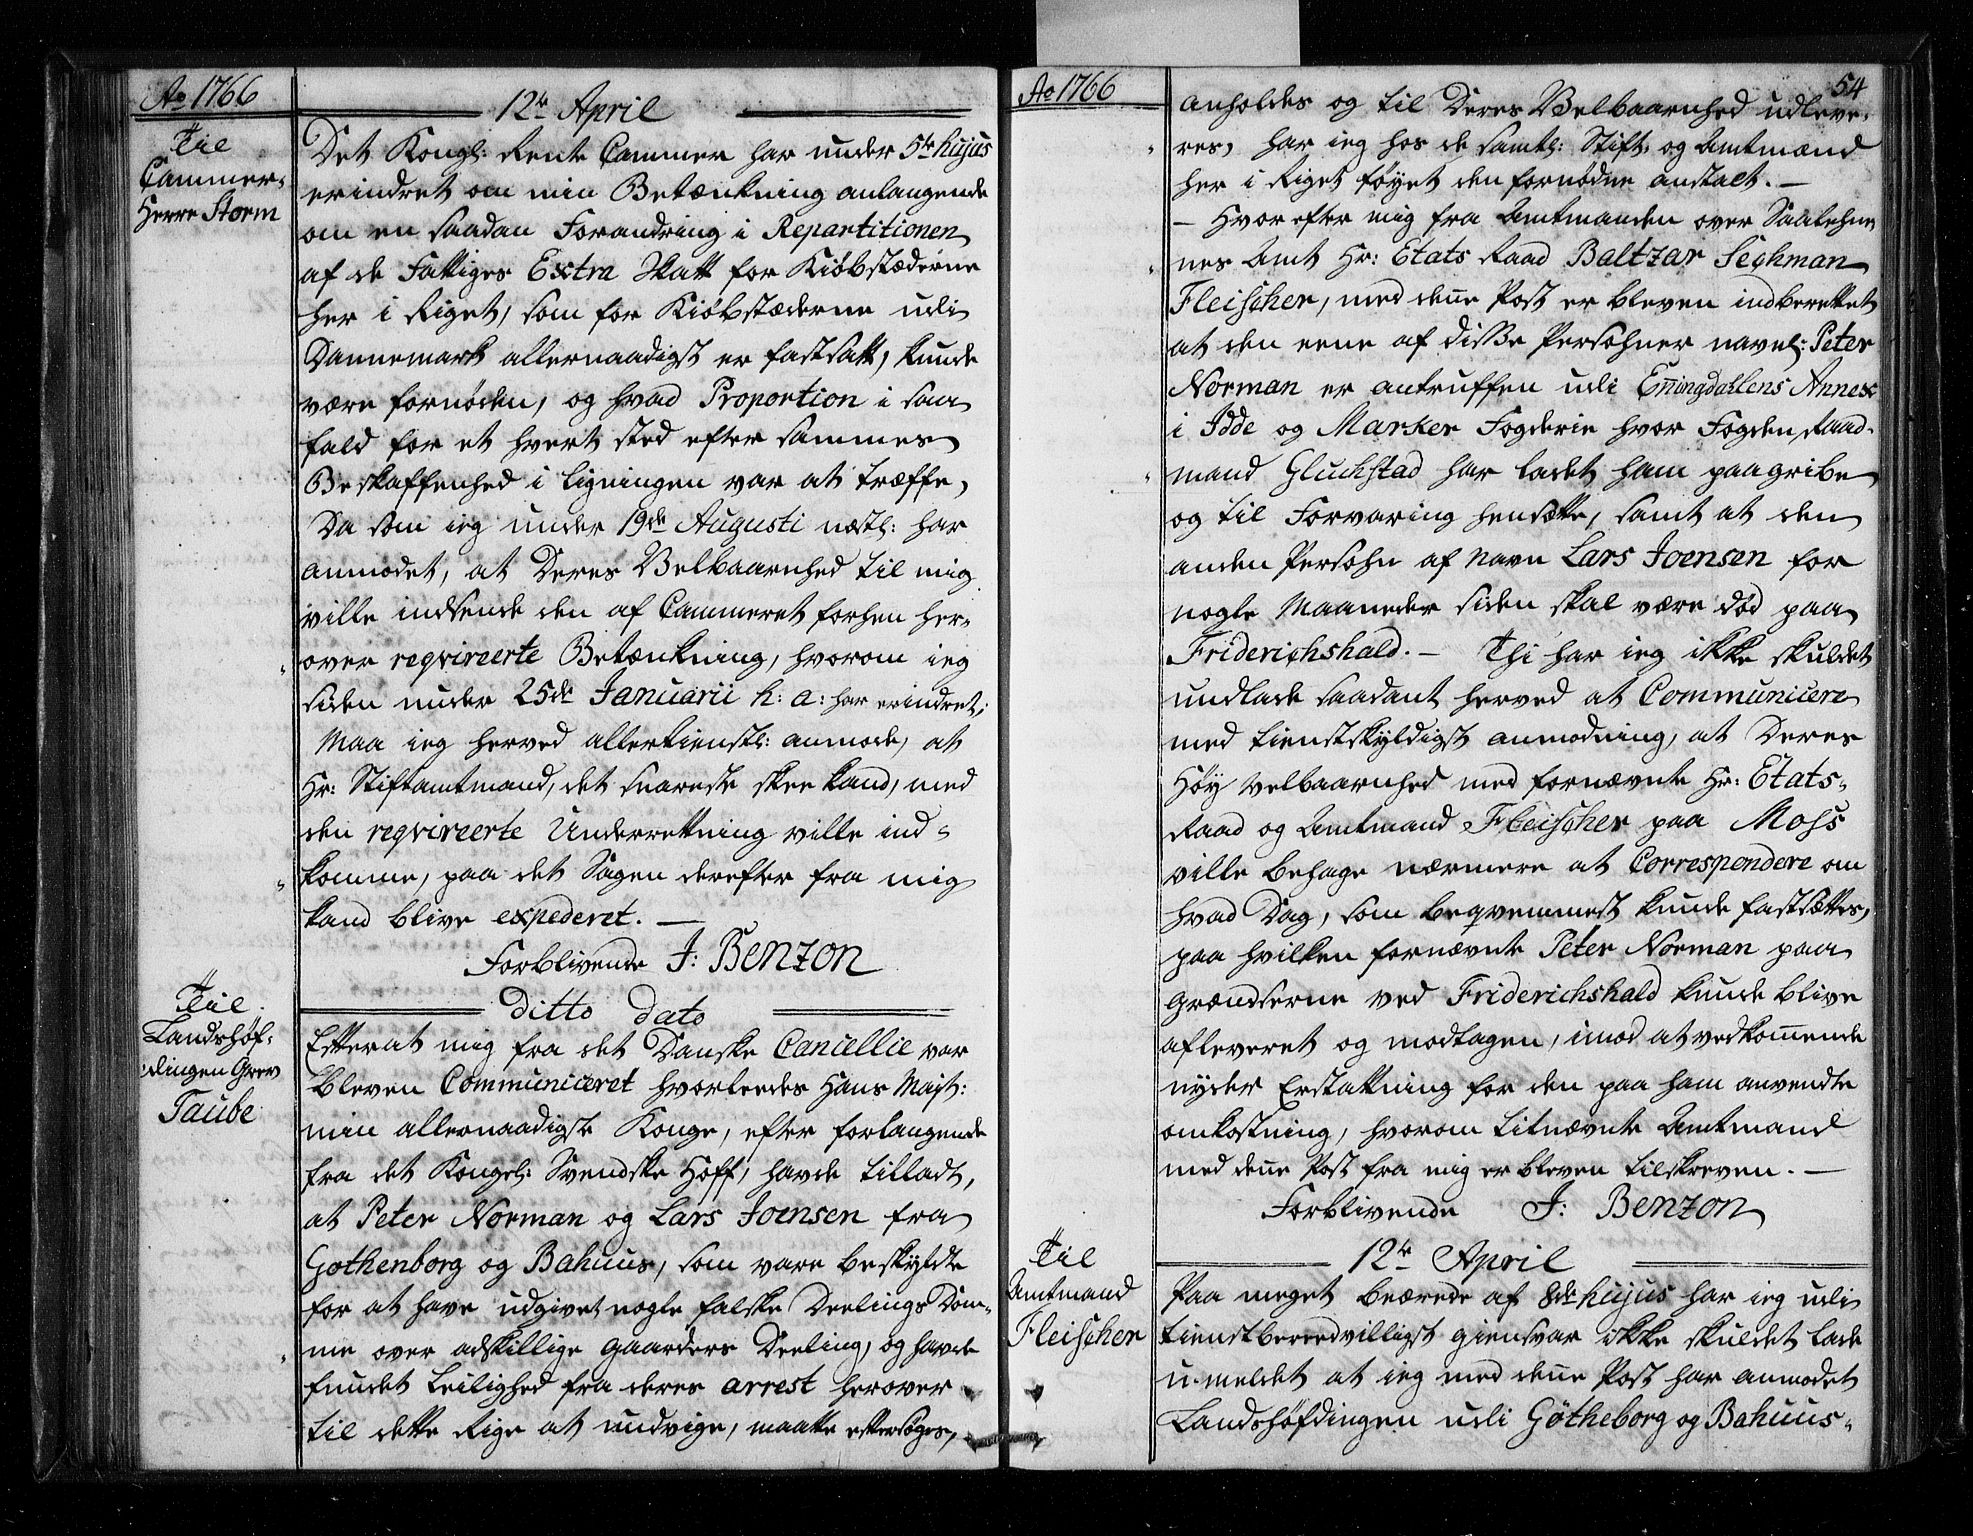 Ao 1766
12te April
Til
Cammer-
Herre Storm
Det Kongl: Rente Cammer har under 5te hujus
erindret om min Betænkning anlangende
om en saadan Forandring i Repartitionen
af de Fattiges Extra Skatt for Kiøbstæderne
her i Riget, som for Kiøbstæderne udi
Dannemark allernaadigst er fastsatt, kunde
være fornøden, og hvad Proportion i saa
fald for et hvert sted efter sammes
Beskaffenhed i Ligningen var at træffe,
Da som ieg under 19de Augusti næstl: har
anmodet, at Deres Velbaarnhed til mig
ville indsende den af Cammeret forhen her-
over reqvireerte Betænkning, hvorom ieg
siden under 25de Januarii h: a: har erindret;
Maa ieg herved allertienstl: anmode, at
Hr: Stiftamtmand, det snareste skee kand, med
den reqvireerte Underrettning ville ind-
komme, paa det Sagen derefter fra mig
kand blive expederet. —
Forblivende J: Benzon
Ditto dato
Til
Landshøf-
dingen Grev
Taube
Efterat mig fra det Danske Cancellie var
bleven Communiceret hvorleedes Hans Majst:
min allernaadigste Konge, efter forlangende
fra det Kongel: Svendske Hoff, havde tilladt,
at Peter Norman og Lars Joensen fra
Gothenborg og Bahuus, som vare beskyldte
for at have udgivet nogle falske Deelings Dom-
me over adskillige Gaarders Deeling, og havde
fundet Leilighed fra deres arrest herover
til dette Rige at undvige, maatte eftersøges,
Ao 1766
54
anholdes og til Deres Velbaarnhed udleve-
res, har ieg hos de samtl: Stift- og Amtmænd
her i Riget føyet den fornødne anstalt. —
— Hvor efter mig fra Amtmanden over Smaalehne-
nes Amt Hr: Etats Raad Baltzar Sechman
Fleischer, med denne Post er bleven indberettet
at den eene af disse Persohner navnl: Peter
Norman er antruffen udi Enningdahlens Annex
i Idde og Marker Fogderie hvor Fogden Raad-
mand Gluckstad har ladet ham paagribe
og til Forvaring hensætte, samt at den
anden Persohn af Navn Lars Joensen for
nogle Maaneder siden skal være død paa
Friderichshald. — Thi har ieg ikke skuldet
undlade saadant herved at Communicere
med tienstskyldigst anmodning, at Deres
Høy Velbaarnhed med fornævnte Hr: Etats-
Raad og Amtmand Fleischer paa Moss
ville behage nærmere at Correspondere om
hvad Dag, som beqvemmest kunde fastsættes,
paa hvilken fornævnte Peter Norman paa
Grændserne ved Friderichshald kunde blive
afleveret og modtagen, imod at vedkommende
nyder Erstattning for den paa ham anvendte
omkostning, hvorom titnævnte Amtmand
med denne Post fra mig er bleven tilskreven. —
Forblivende J: Benzon
12te April
Til
Amtmand
Fleischer
Paa meget beærede af 8de hujus har ieg udi
tienstbereedvilligst giensvar ikke skuldet lade
u-meldet at ieg med denne Post har anmodet
Landshøfdingen udi Götheborg og Bahuus-